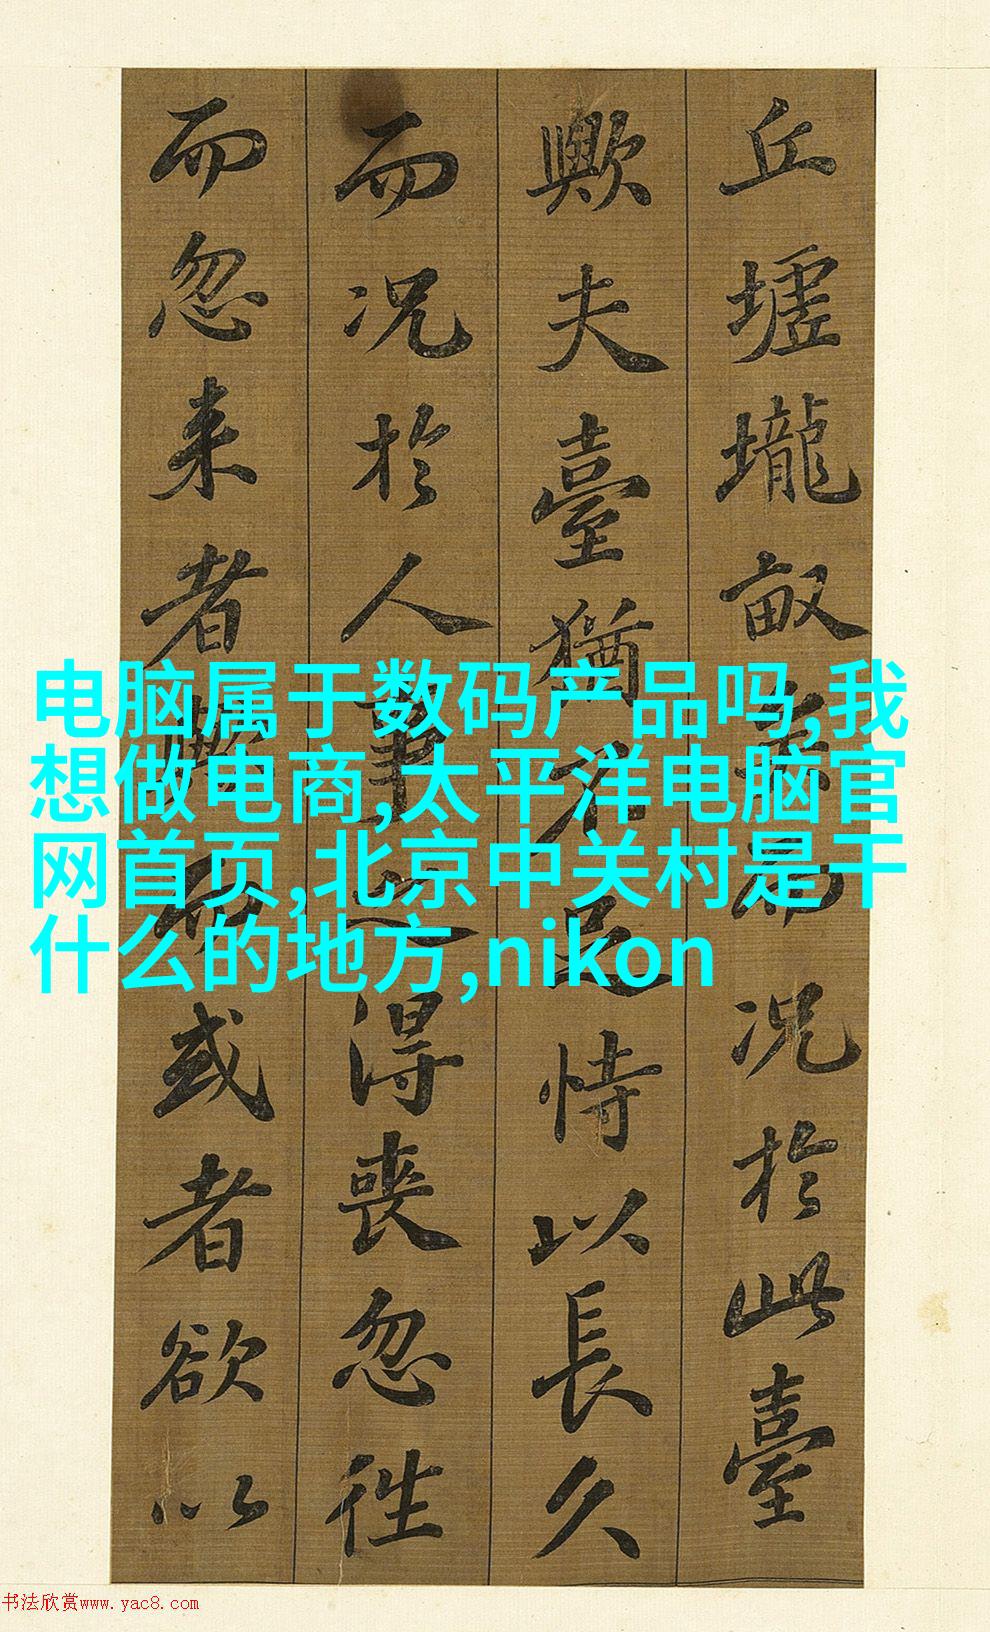 丘墟壠畝矣而况於此臺
歟夫臺猶不足恃以長久
而况於人事之得喪忽往
而忽来者歟而或者欲以
电脑属于数码产品吗,我
想做电商,太平洋电脑官
网首页,北京中关村是干
什么的地方,nikon
书法欣赏www.yac8.com